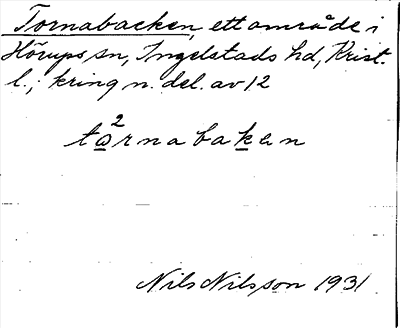 Tornabacken, ett område i
Hörups sn, Ingelstads hd, Krist.
l.; kring n. del. av 12
to²rnabaken
Nils Nilsson 1931